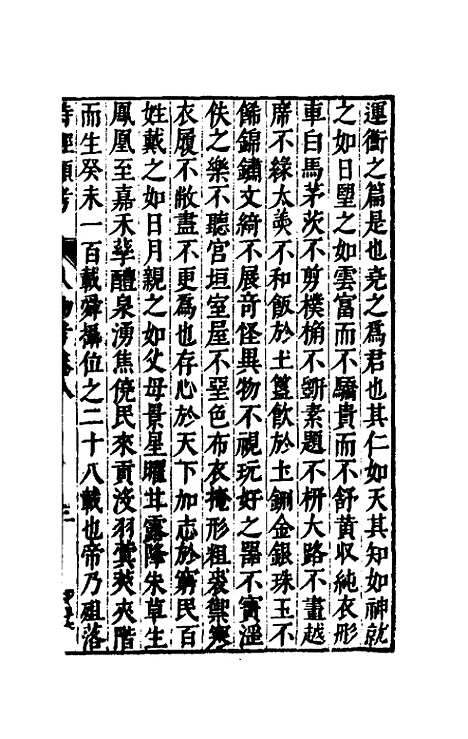 運衡之篇是也堯之為君也其仁如天其知如神就
之如日朢之如雲富而不驕貴而不舒黃収純衣彤
車白馬茅茨不剪樸桷不斵素題不枅大路不畫越
席不緣太羮不和飯於土簋飲於土鉶金銀珠玉不
餙錦鏽文綺不展竒怪異物不視玩好之噐不寳滛
佚之樂不聽宫垣室屋不堊色布衣掩形粗裘禦寒
衣履不敝盡不更為也存心於天下加志於窮民百
姓戴之如日月親之如父母景星曜甘露降朱草生
鳳凰至嘉禾孳醴泉湧焦僥民來貢没羽蓂莢夾階
而生癸未一百載舜攝位之二十八載也帝乃殂落
詩經類考 人物考卷八 三